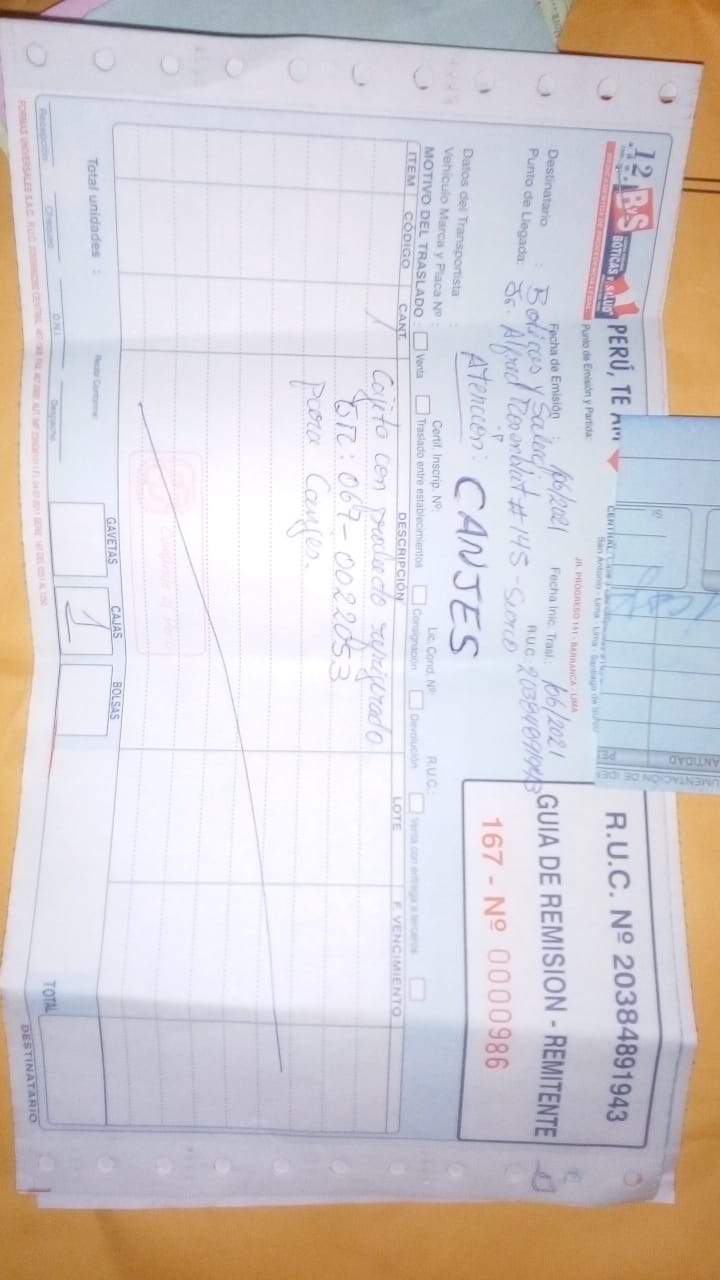 12
ByS
BOTICAS Y SALUD
PERÚ, TE
Punto de Emisión y Partida:
CENTRAL:
San Antonio - Lima - Lima - Santiago de Surco
JR. PROGRESO 141 - BARRANCA - LIMA
R.U.C. Nº 20384891943
GUIA DE REMISION - REMITENTE
167 - Nº 0000986
Fecha de Emisión /06/2021 Fecha Inic. Trasl.: /06/2021
Destinatario : Boticas y Salud R.U.C.: 20384891943
Punto de Llegada: Jr. Alfred Rosenblat # 145 - Surco
Atención: CANJES
Datos del Transportista :
Vehículo Marca y Placa Nº : Certif. Inscrip. Nº: Lic. Cond. Nº: R.U.C.:
MOTIVO DEL TRASLADO : Venta Traslado entre establecimientos Consignación Devolución Venta con entrega a terceros
ITEM CÓDIGO CANT. DESCRIPCIÓN LOTE F. VENCIMIENTO
1 Cajita con producto refrigerado
067-0022053
para Canjes.
GAVETAS CAJAS BOLSAS
Total unidades : 1 TOTAL
Recibí Conforme
Recepción Chequeo D.N.I. Despacho
FORMAS UNIVERSALES S.A.C.
DESTINATARIO
ANTIDAD